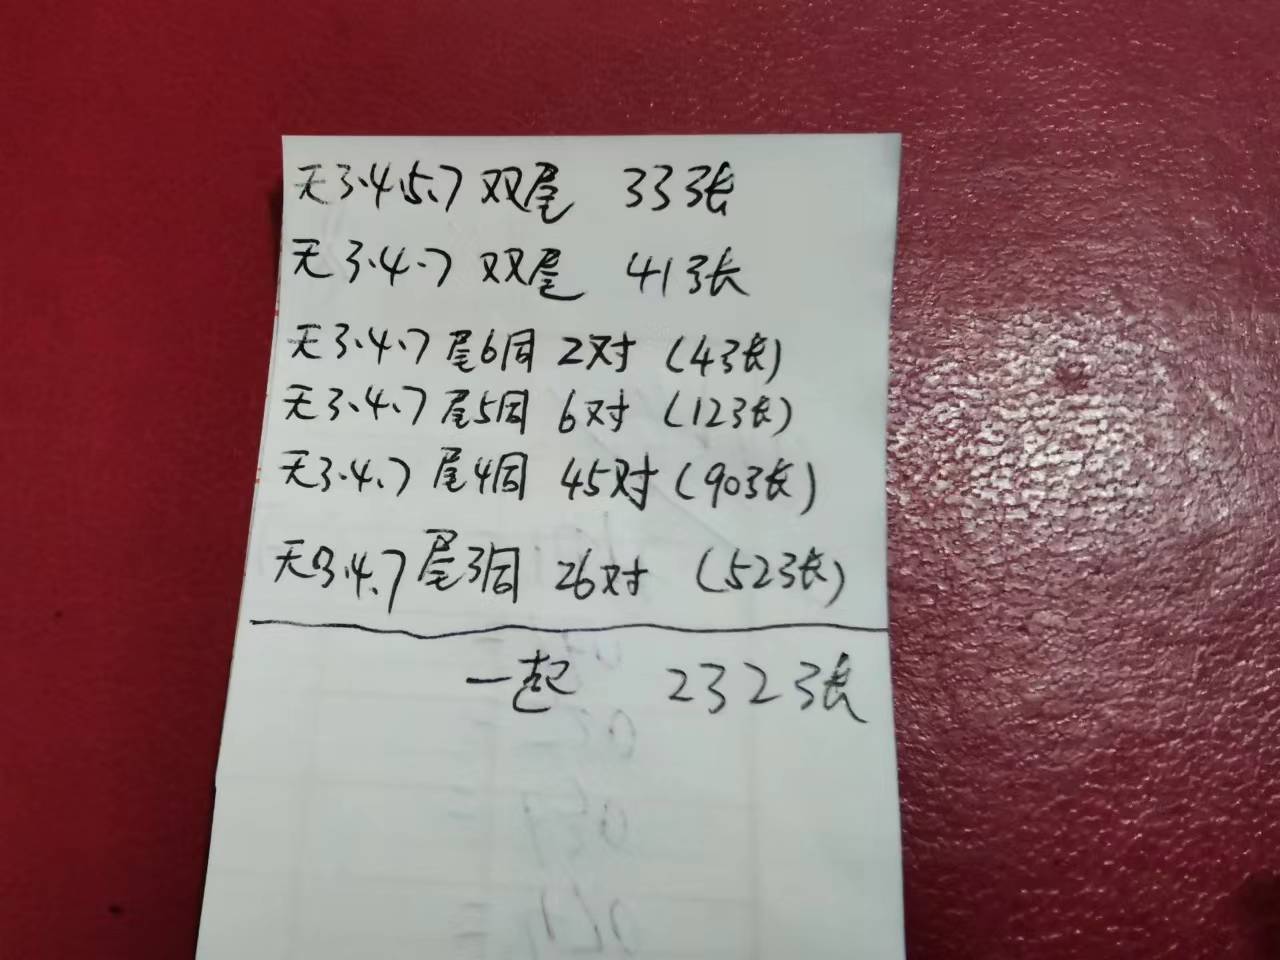 无3.4.5.7 双尾 33张
无3.4.7 双尾 41张
无3.4.7 尾6同 2对 (4张)
无3.4.7 尾5同 6对 (12张)
无3.4.7 尾4同 45对 (90张)
无3.4.7 尾3同 26对 (52张)
一起 232张